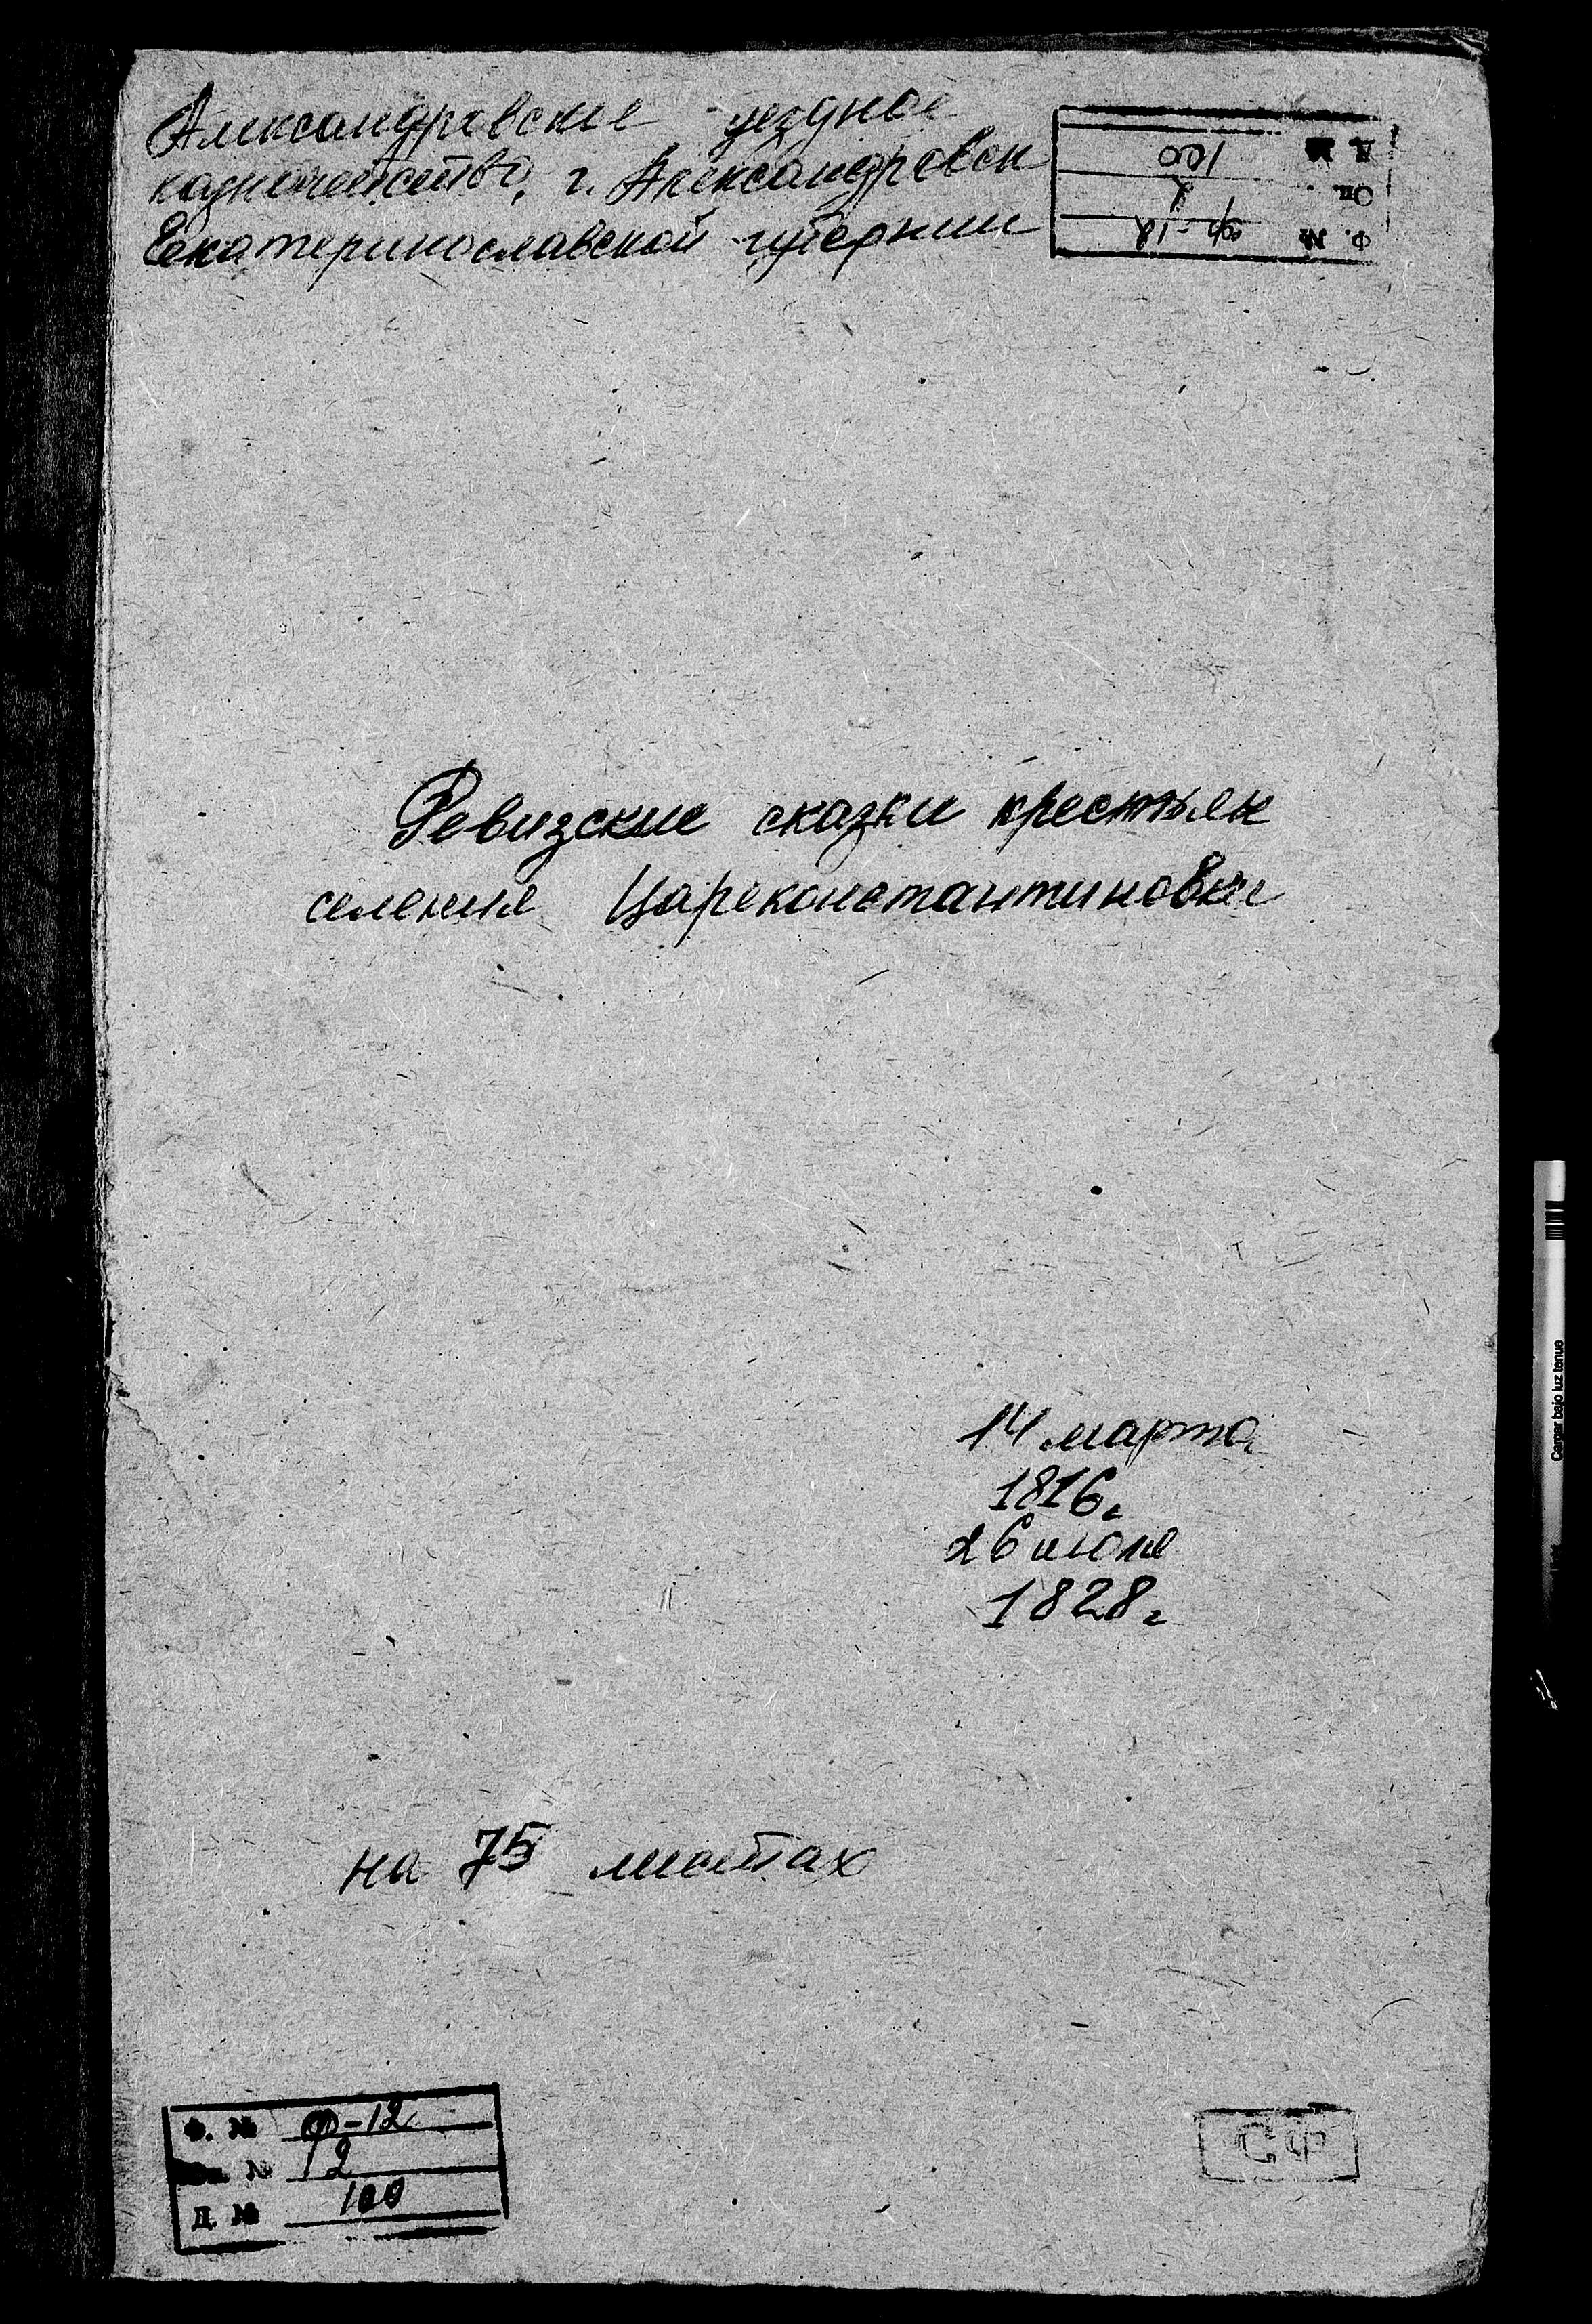 Александровское уездное
казначейство, г. Александровск
Екатеринославской губернии
Д. № 100
Оп. 2
Ф. № Ф-12
Ревизские сказки крестьян
селения Цареконстантиновки
14 марта
1816г
26 июля
1828г
на 75 листах
Ф. № Ф-12
№ 2
Д. № 100
СФ